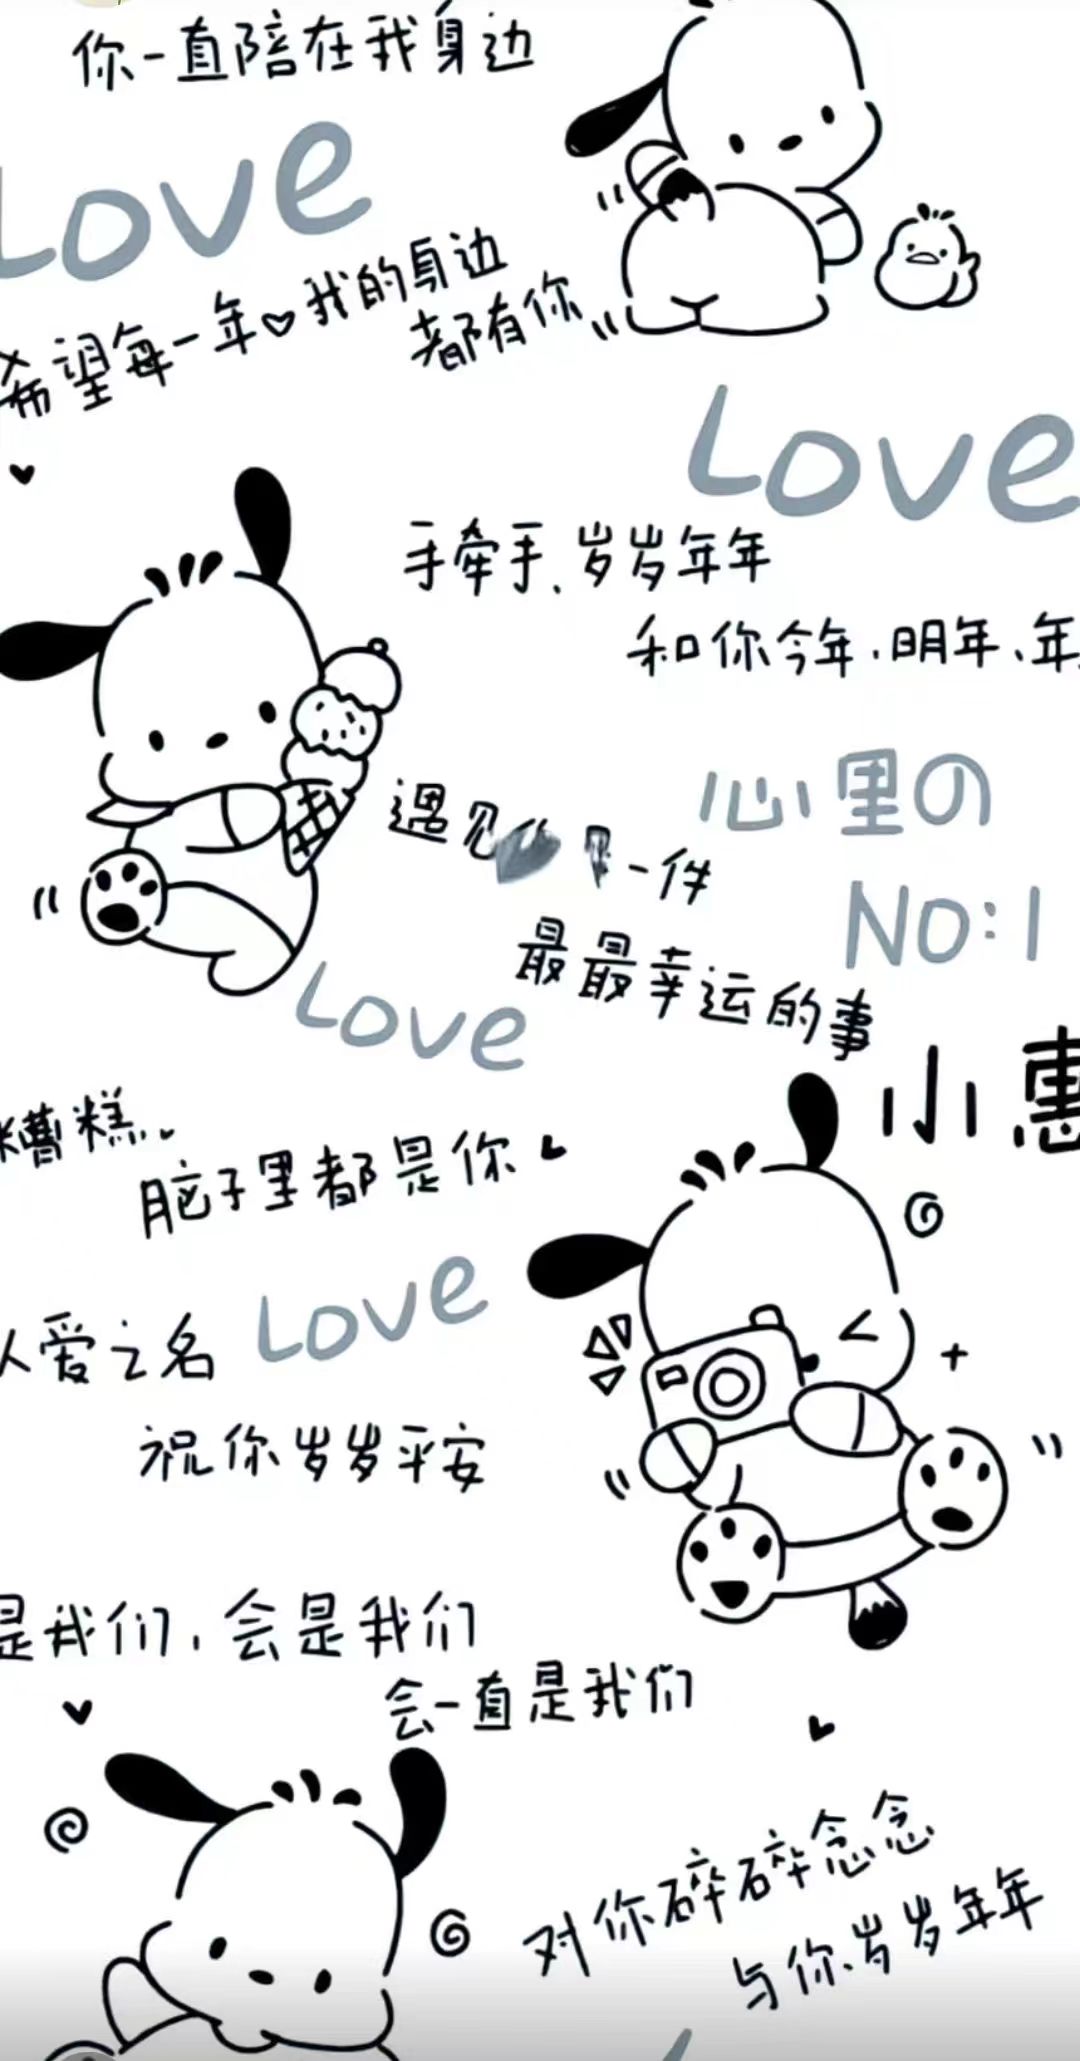 你一直陪在我身边
Love
希望每一年我的身边
都有你
Love
手牵手、岁岁年年
和你今年、明年、年
遇见
一件
心里の
NO:1
最最幸运的事
Love
小惠
糟糕..
脑子里都是你
以爱之名
Love
祝你岁岁平安
是我们,会是我们
会一直是我们
对你碎碎念念
与你、岁岁年年